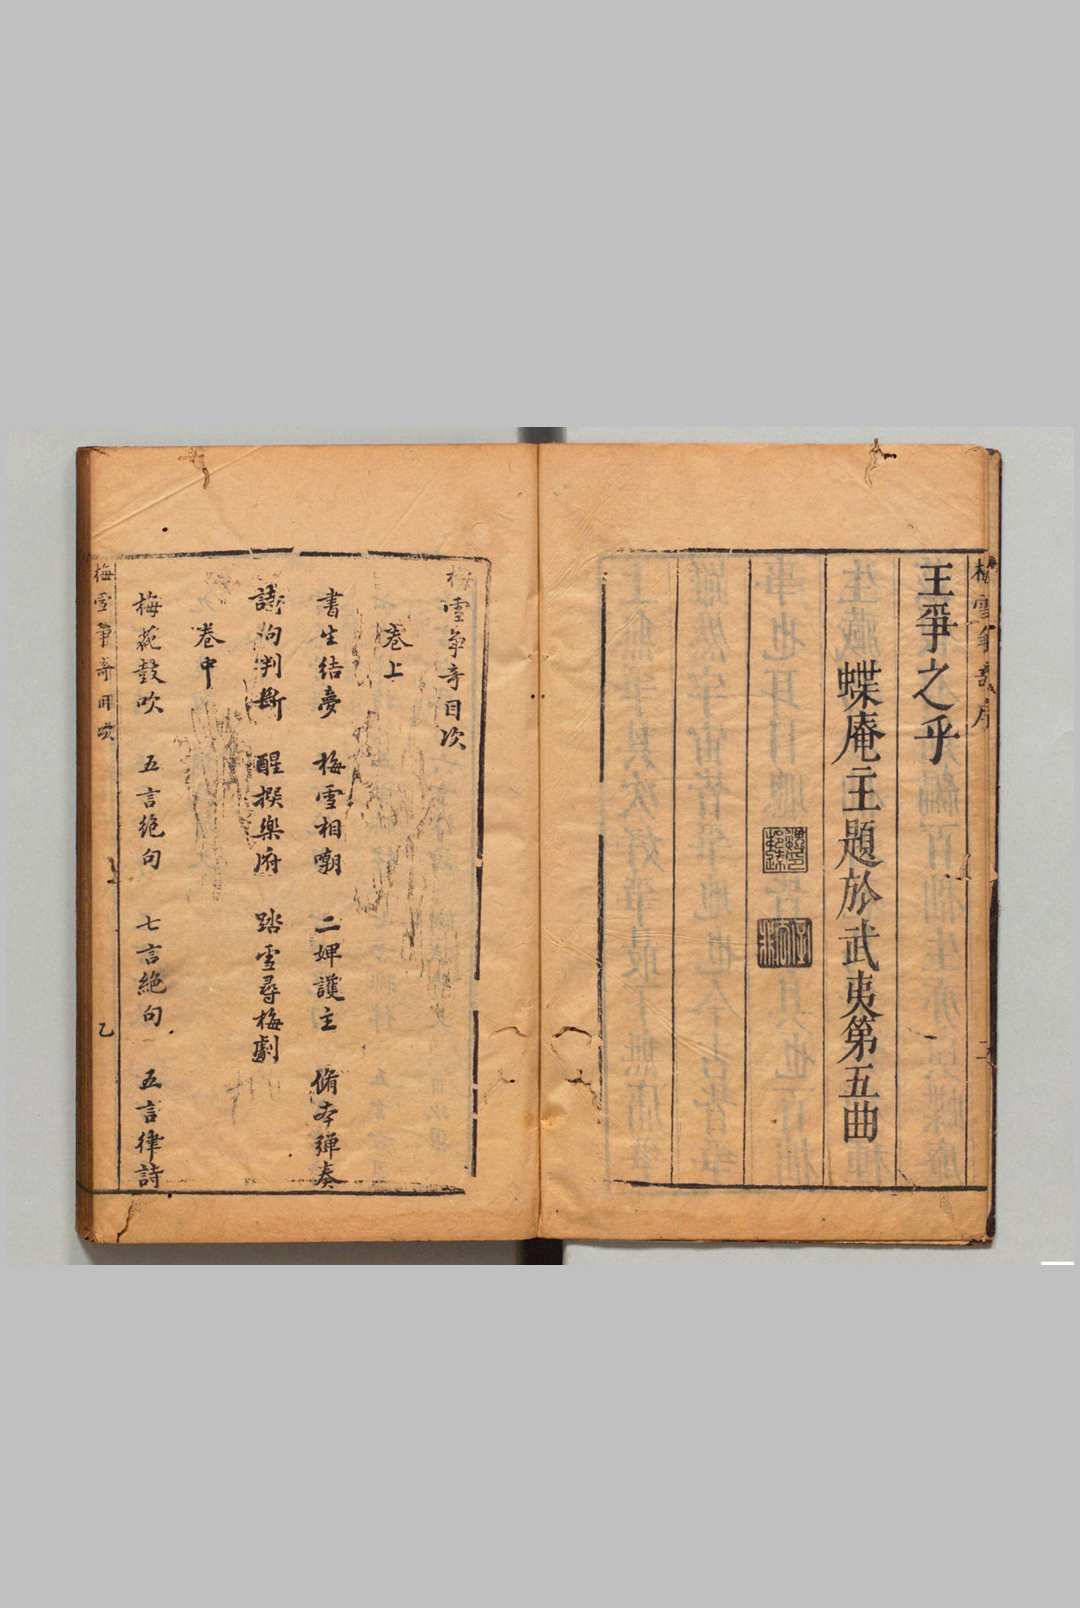 王爭之乎
蝶庵主題於武夷第五曲
梅雪爭奇目次
卷上
書生結夢　梅雪相嘲　二婢護主　脩本彈奏
詩狗判斷　醒撰樂府　踏雪尋梅劇
卷中
梅花鼓吹　五言絕句　七言絕句　五言律詩
梅雪爭奇目次　乙